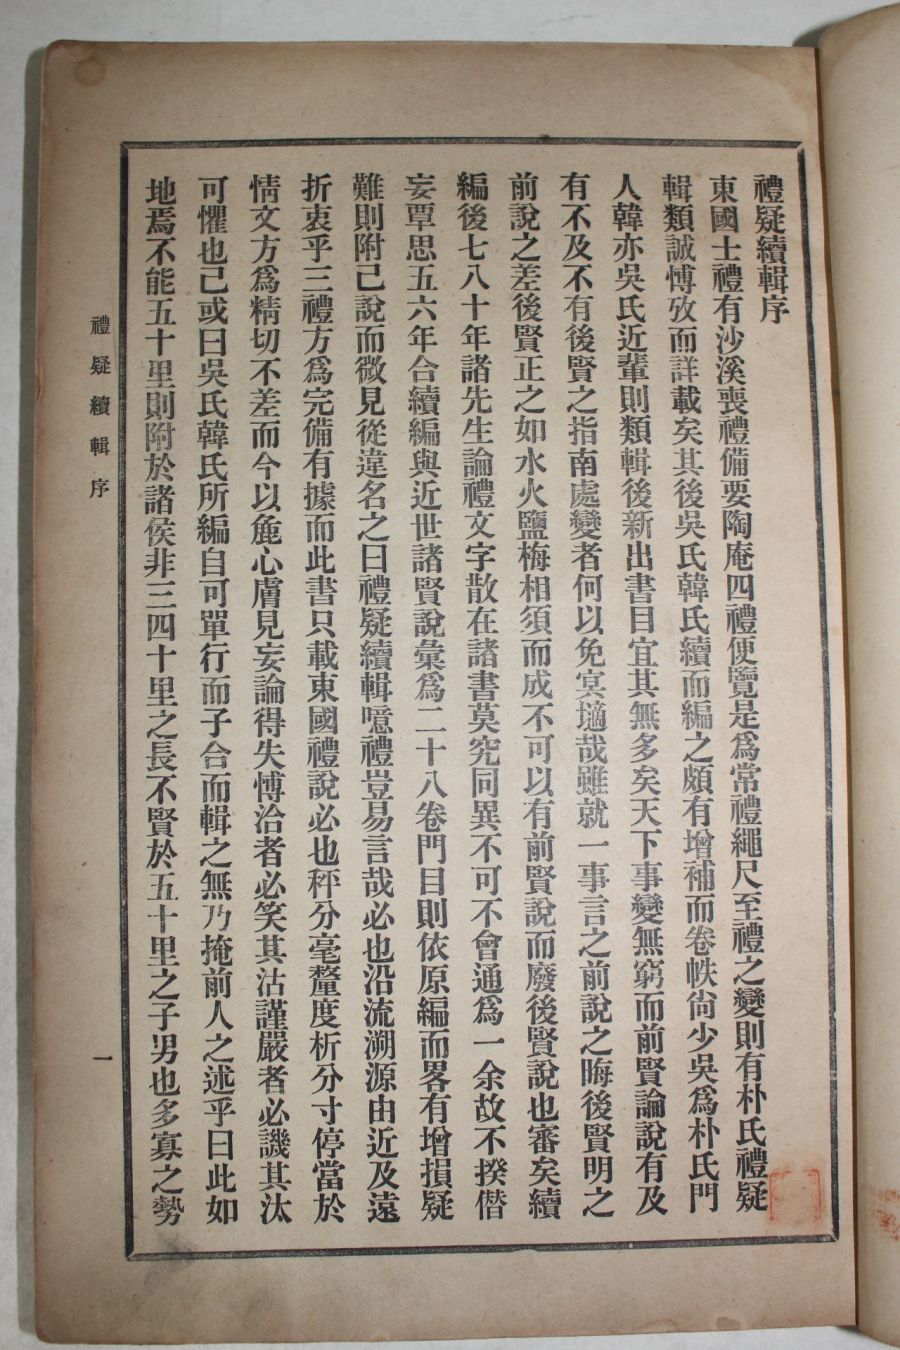 禮疑續輯序
東國士禮有沙溪喪禮備要陶庵四禮便覽是爲常禮繩尺至禮之變則有朴氏禮疑
輯類誠愽攷而詳載矣其後吳氏韓氏續而編之頗有增補而卷帙尙少吳爲朴氏門
人韓亦吳氏近輩則類輯後新出書目宜其無多矣天下事變無窮而前賢論說有及
有不及不有後賢之指南處變者何以免冥擿哉雖就一事言之前說之晦後賢明之
前說之差後賢正之如水火鹽梅相須而成不可以有前賢說而廢後賢說也審矣續
編後七八十年諸先生論禮文字散在諸書莫究同異不可不會通爲一余故不揆僭
妄覃思五六年合續編與近世諸賢說彙爲二十八卷門目則依原編而畧有增損疑
難則附己說而微見從違名之曰禮疑續輯噫禮豈易言哉必也沿流溯源由近及遠
折衷乎三禮方爲完備有據而此書只載東國禮說必也秤分毫釐度析分寸停當於
情文方爲精切不差而今以麁心膚見妄論得失愽洽者必笑其沽謹嚴者必譏其汰
可懼也已或曰吳氏韓氏所編自可單行而子合而輯之無乃掩前人之述乎曰此如
地焉不能五十里則附於諸侯非三四十里之長不賢於五十里之子男也多寡之勢
禮疑續輯 序
一